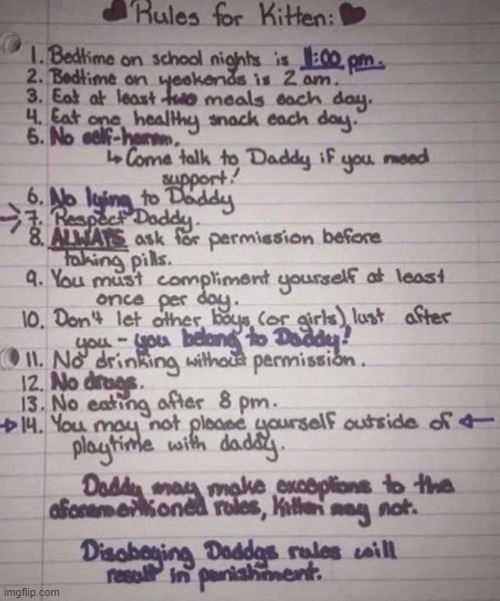 Rules for Kitten:
1. Bedtime on school nights is 11:00 pm.
2. Bedtime on weekends is 2 am.
3. Eat at least two meals each day.
4. Eat one healthy snack each day.
5. No self-harm.
↳ Come talk to Daddy if you need
support!
6. No lying to Daddy
→ 7. Respect Daddy.
8. ALWAYS ask for permission before
taking pills.
9. You must compliment yourself at least
once per day.
10. Don't let other boys (or girls) lust after
you - you belong to Daddy!
11. No drinking without permission.
12. No drugs.
13. No eating after 8 pm.
→ 14. You may not please yourself outside of ←
playtime with daddy.
Daddy may make exceptions to the
aforementioned rules, Kitten may not.
Disobeying Daddys rules will
result in punishment.
imgflip.com